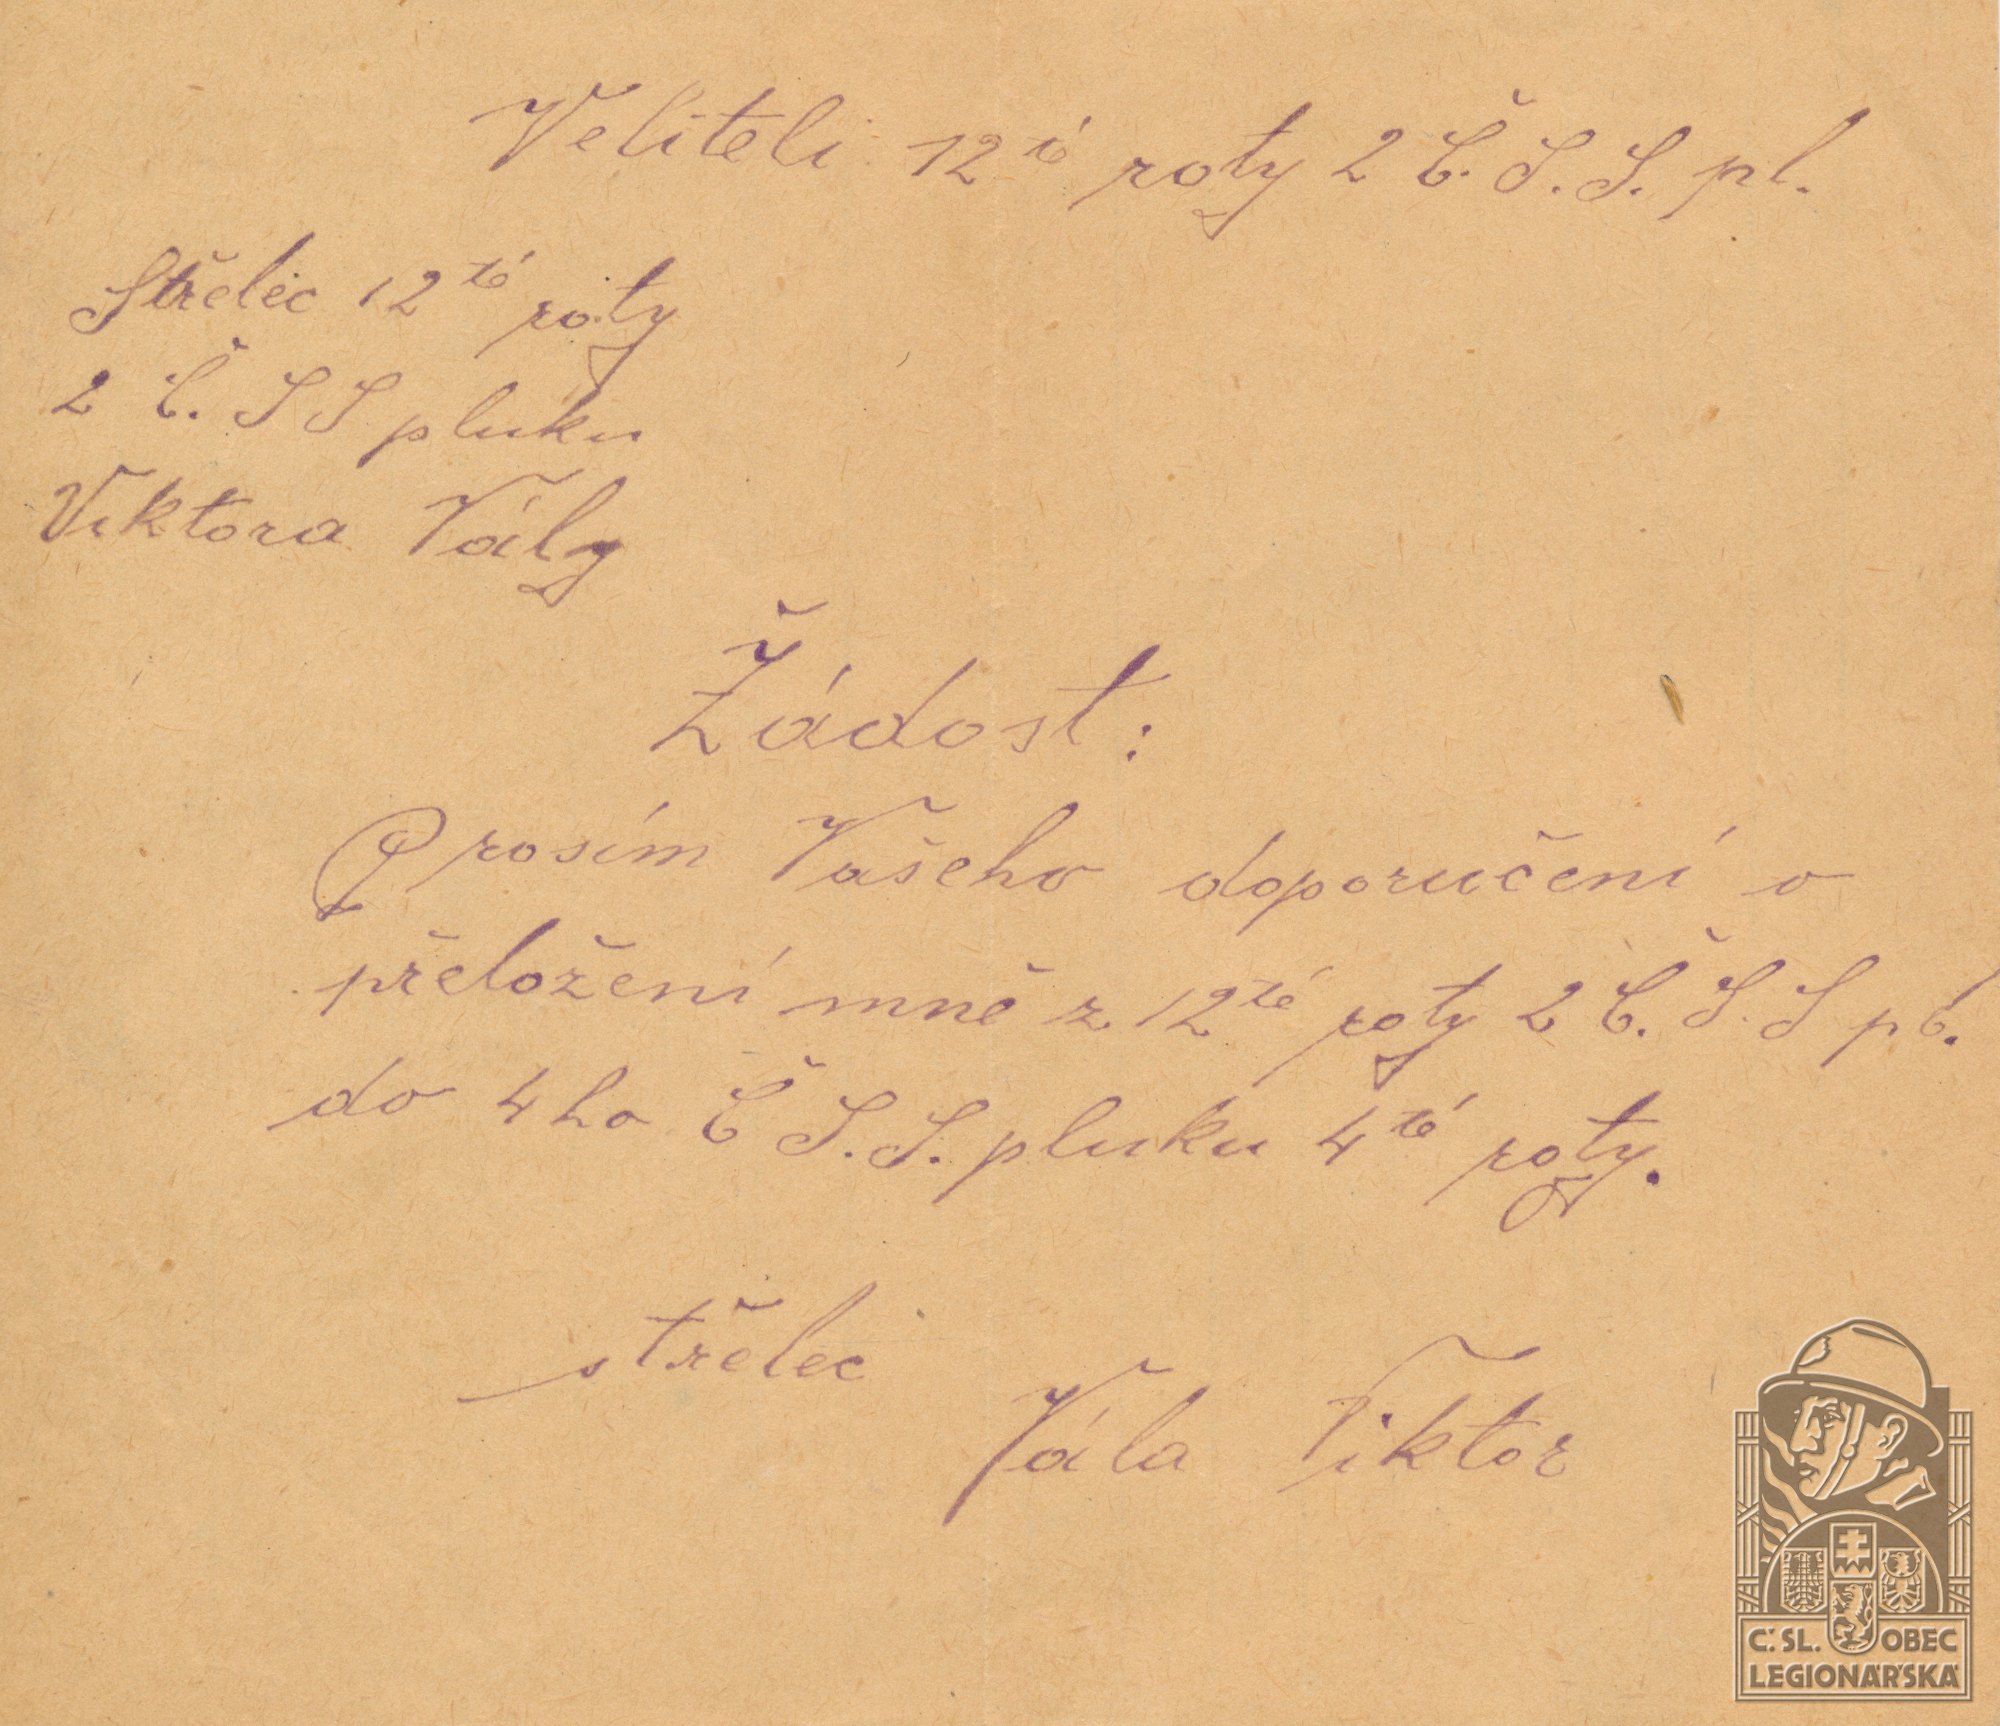 Veliteli 12té roty 2 Č. S. S. pl.
Střelec 12té roty
2 Č. S S pluku
Viktora Vály
Žádost:
Prosím Vašeho doporučení o
přeložení mně z 12té roty 2 Č. S. S pl.
do 4ho Č S. S. pluku 4té roty.
střelec
Vála Viktor
Č. SL. OBEC
LEGIONÁŘSKÁ